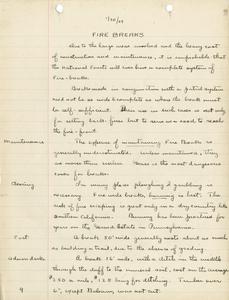 1/20/29
FIRE BREAKS
Due to the large area involved and the heavy cost
of construction and maintenance, it is improbable that
the National Forests will ever have a complete system of
Fire-breaks.
Breaks made in conjunction with a patrol system
need not be as wide & complete as where the break must in
itself be sufficient. Their use in such cases is not only
for setting back-fires but to serve as a road to reach
the fire-front.
Maintenance The expense of maintaining Fire Breaks is
generally underestimated. Unless maintained, they
are worse than useless. Grass is the most dangerous
cover for breaks.
Clearing In many places ploughing & grubbing is
necessary. For wide breaks, burning is best. The
risk of fire escaping is great only in a dry country like
Southern California. Burning has been practiced for
years on the Girard Estate in Pennsylvania.
Cost A break 30' wide generally costs about as much
as building a trail, due to the absence of grading.
Adirondacks A break 15' wide, with a ditch in the middle
through the duff to the mineral soil, cost on the average
6", except Balsam were not cut.
9